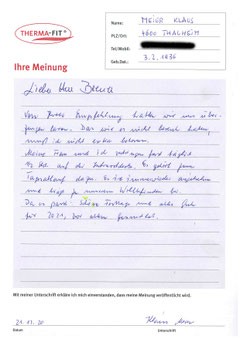 THERMA-FIT®
Ihre Meinung
Name: MEIER KLAUS
PLZ/Ort: 4600 THALHEIM
Tel/Mobil:
Geb.Dat.: 3.2.1936
Liebe Frau
Von Ihrer Empfehlung hatten wir uns über-
zeugen lassen. Das wir es nicht bereut haben,
muß ich nicht extra betonen.
Meine Frau und ich verbringen fast täglich
Es gehört zum
Tagesablauf dazu. Es ist immer wieder angenehm
und trägt zu unserem Wohlbefinden bei
Da es passt: Schöne Festtage und alles Gute
für 2021, vor allem Gesundheit.
Mit meiner Unterschrift erkläre ich mich einverstanden, dass meine Meinung veröffentlicht wird.
21.12.20
Datum
Unterschrift